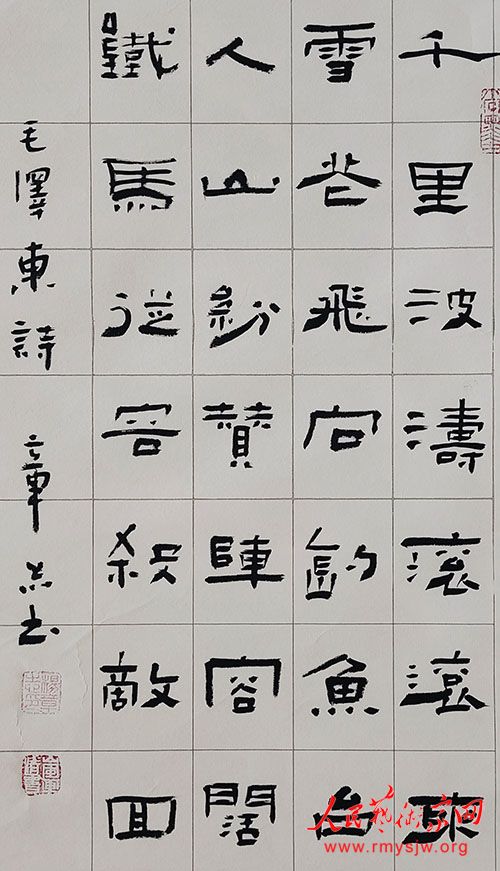 千里波濤滾滾來
雪花飛向釣魚台
人山紛贊陣容闊
鐵馬從容殺敵回
毛澤東詩 章书
人民藝術家网
www.rmysjw.org